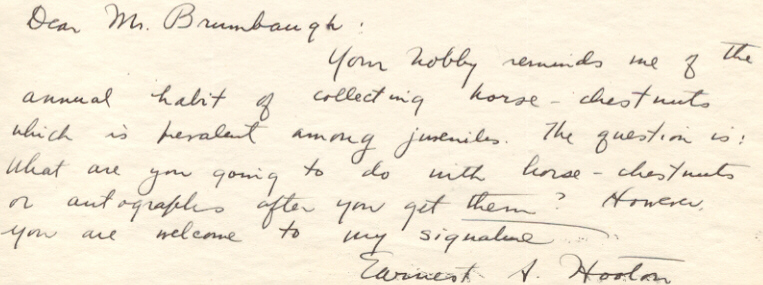 Dear Mr. Brumbaugh:
Your hobby reminds me of the
annual habit of collecting horse-chestnuts
which is prevalent among juveniles. The question is:
What are you going to do with horse-chestnuts
or autographs after you get them? However,
you are welcome to my signature
Earnest A. Hooton